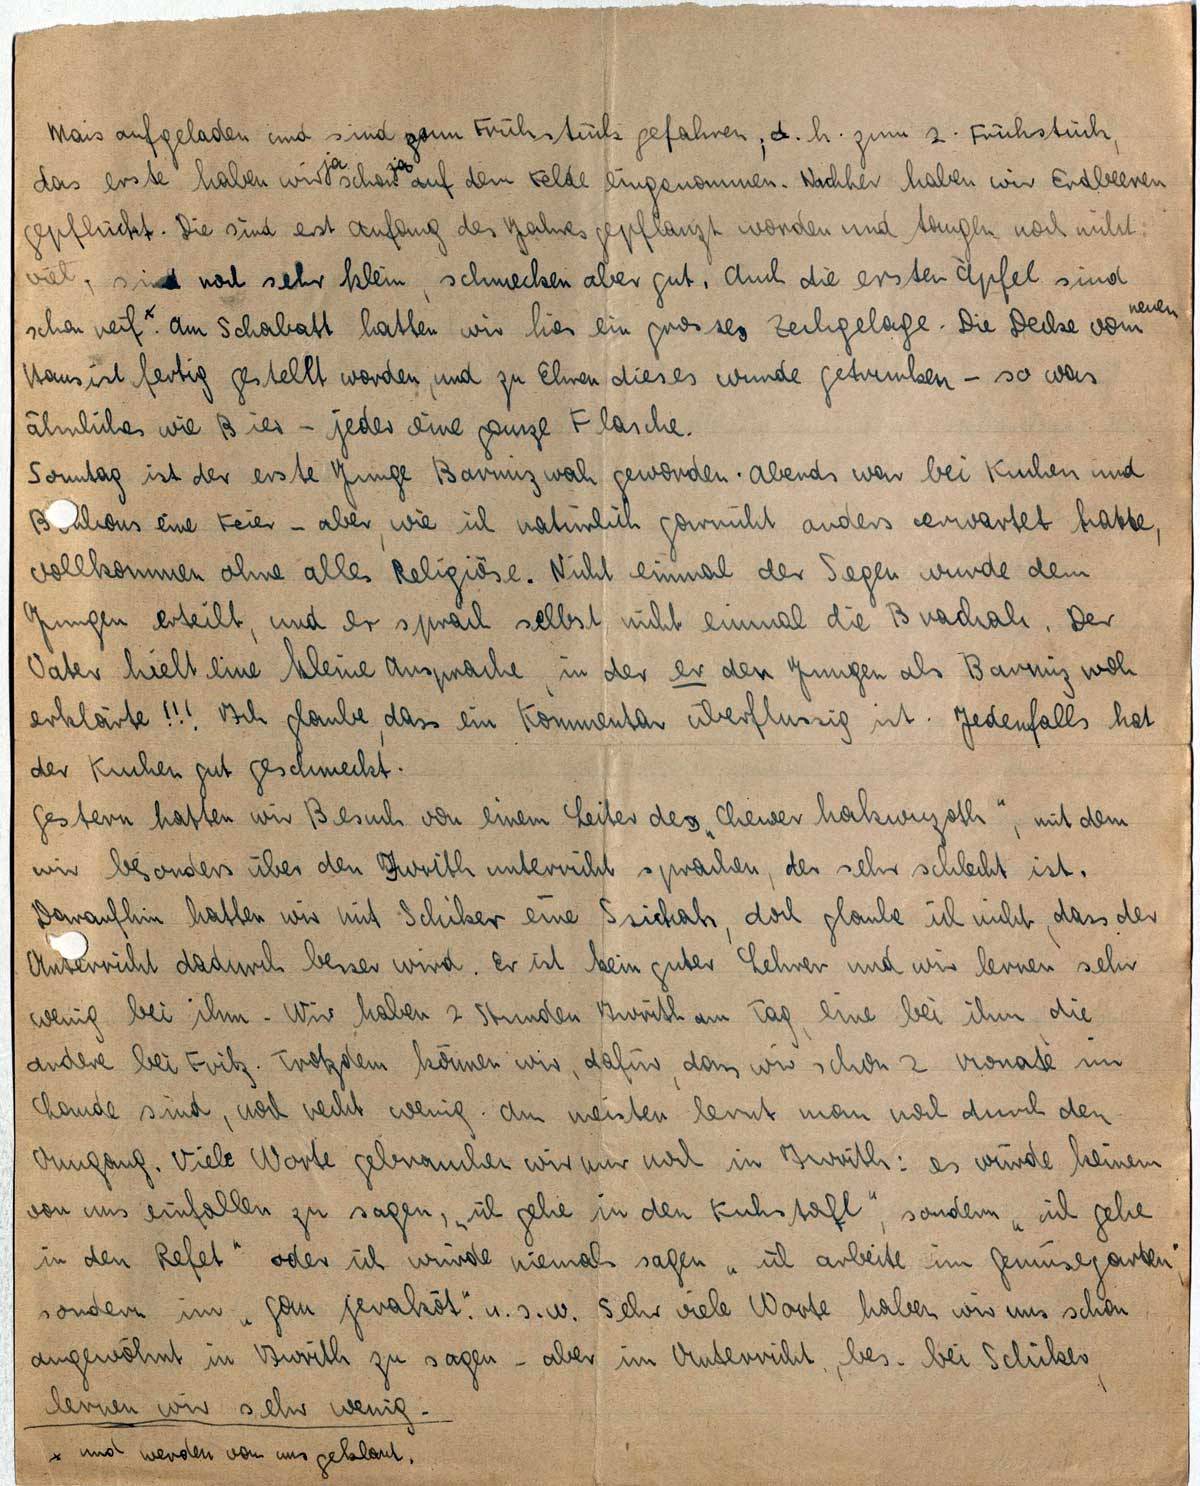 Mais aufgeladen und sind zum Frühstück gefahren, d. h. zum 2. Frühstück,
das erste haben wir ja schon auf dem Felde eingenommen. Nachher haben wir Erdbeeren
gepflückt. Die sind erst Anfang des Jahres gepflanzt worden und taugen noch nicht
viel, sind noch sehr klein, schmecken aber gut. Auch die ersten Äpfel sind
schon reif*. Am Schabatt hatten wir hier ein grosses Zechgelage. Die Decke vom neuen
Haus ist fertig gestellt worden, und zu Ehren dieses wurde getrunken – so was
ähnliches wie Bier – jeder eine ganze Flasche.
Sonntag ist der erste Junge Barmizwah geworden. Abends war bei Kuchen und
Bonbons eine Feier – aber, wie ich natürlich garnicht anders erwartet hatte,
vollkommen ohne alles Religiöse. Nicht einmal der Segen wurde dem
Jungen erteilt, und er sprach selbst nicht einmal die Brachah. Der
Vater hielt eine kleine Ansprache, in der er den Jungen als Barmizwah
erklärte!!! Ich glaube, dass ein Kommentar überflussig ist. Jedenfalls hat
der Kuchen gut geschmeckt.
Gestern hatten wir Besuch von einem Leiter des „Chewer hakwuzoth“, mit dem
wir besonders über den Iwrithunterricht sprachen, der sehr schlecht ist.
Daraufhin hatten wir mit Schiker eine Ssichah, doch glaube ich nicht, dass der
Unterricht dadurch besser wird. Er ist kein guter Lehrer und wir lernen sehr
wenig bei ihm. Wir haben 2 Stunden Iwrith am Tag, eine bei ihm die
andere bei Fritz. Trotzdem können wir, dafür, dass wir schon 2 Monate im
Lande sind, noch recht wenig. Am meisten lernt man noch durch den
Umgang. Viele Worte gebrauchen wir nur noch in Iwrith: es würde keinem
von uns einfallen zu sagen, „ich gehe in den Kuhstall“, sondern „ich gehe
in den Refet“ oder ich würde niemals sagen „ich arbeite im Gemüsegarten“,
sondern im „gan jerakót“. u. s. w. Sehr viele Worte haben wir uns schon
angewöhnt in Iwrith zu sagen – aber im Unterricht, bes. bei Schiker,
lernen wir sehr wenig.
* und werden von uns geklaut.